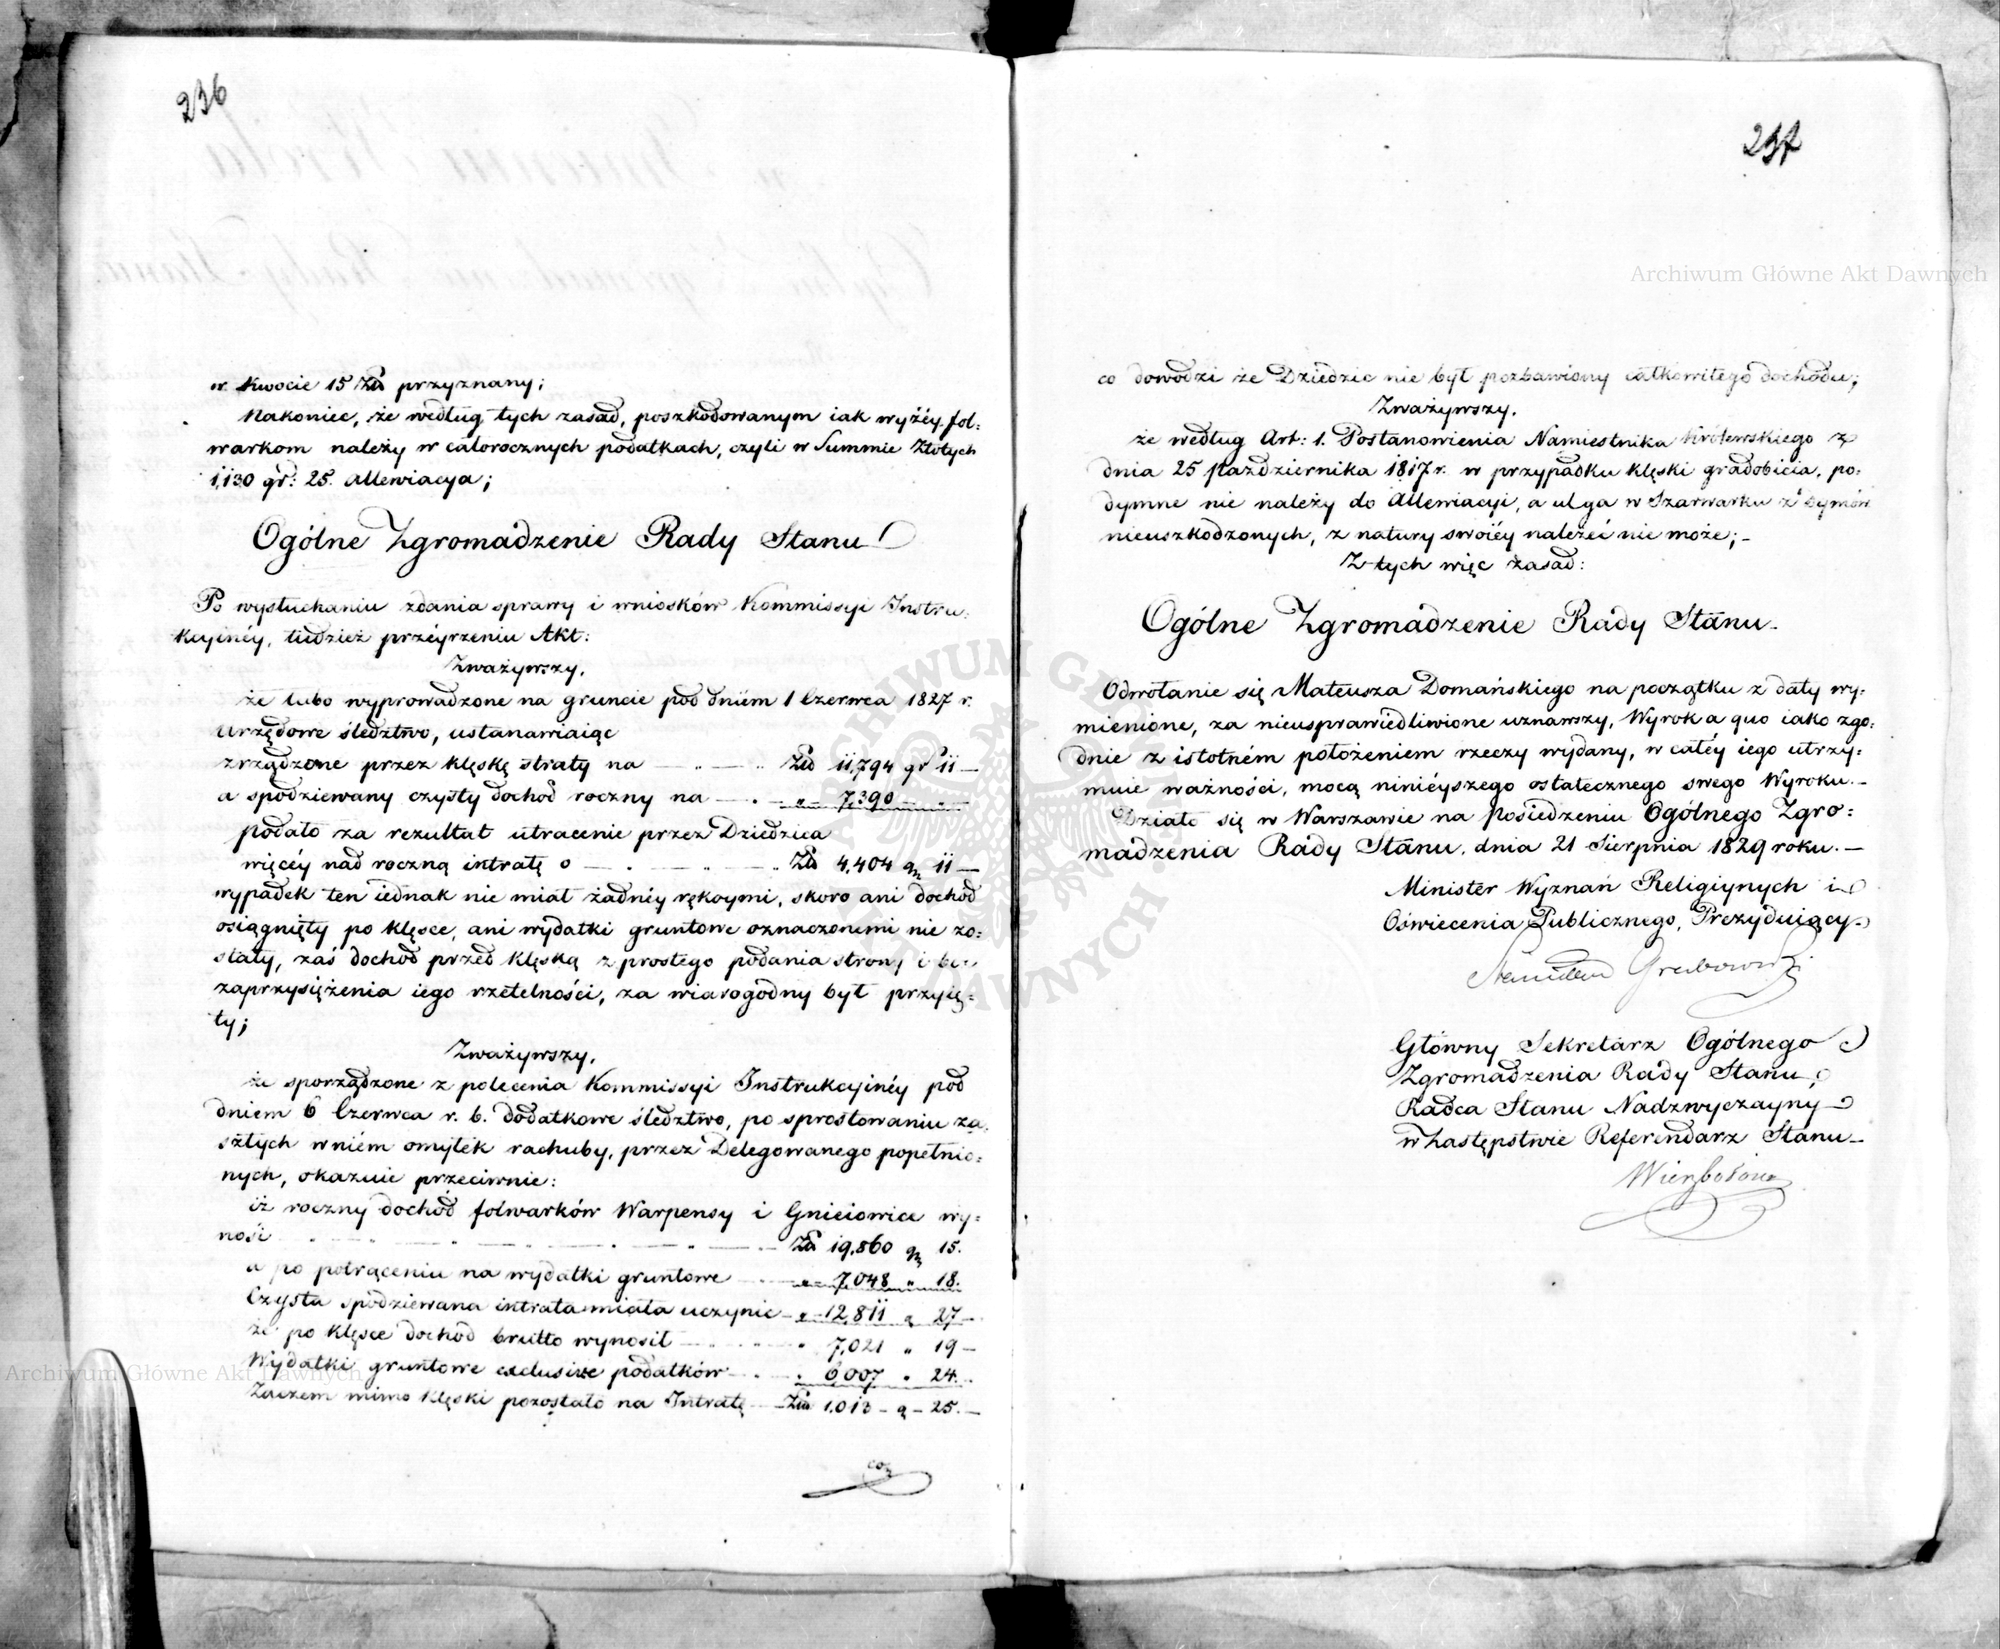 236
w kwocie 15 Złł przyznany;
Nakoniec, że według tych zasad, poszkodowanym iak wyżéy fol=
warkom należy w całorocznych podatkach, czyli w Summie Złotych
1,130 gr: 25. Allewiacya;
Ogólne Zgromadzenie Rady Stanu
Po wysłuchaniu zdania sprawy i wniosków Kommissyi Instru=
kcyinéy, tudzież przéyrzeniu Akt:
Zważywszy,
że lubo wyprowadzone na gruncie pod dniem 1 Czerwca 1827 r.
urzędowe śledztwo, ustanawiaiąc
zrządzone przez klęskę straty na — „ — „ Złł 11,794 gr 11 —
a spodziewany czysty dochód roczny na — . — „ — 7,390 — „
podało za rezultat utracenie przez Dziedzica
więcéy nad roczną intratę o — . — „ — „ Złł 4,404 gr 11 —
wypadek ten iednak nie miał żadnéy rękoymi, skoro ani dochód
osiągnięty po klęsce, ani wydatki gruntowe oznaczonemi nie zo=
stały, zaś dochód przed klęską z prostego podania strony i bez
zaprzysiężenia iego rzetelności, za wiarogodny był przyię=
ty;
Zważywszy,
że sporządzone z polecenia Kommissyi Instrukcyinéy pod
dniem 6 Czerwca r. b. dodatkowe śledztwo, po sprostowaniu za=
szłych w niém omyłek rachuby, przez Delegowanego popełnio=
nych, okazuie przeciwnie:
iż roczny dochód folwarków Warpensy i Gnieciowice wy=
nosi — Złł 19,860 gr 15.
a po potrąceniu na wydatki gruntowe — „ — 7,048 „ 18.
Czysta spodziewana intrata miała uczynić — „ — 12,811 g 27 —
że po klęsce dochód brutto wynosił — „ 7,021 „ 19 —
Wydatki gruntowe exclusive podatków — . — „ 6,007 „ 24.
Zaczem mimo klęski pozostało na Intratę — Złł 1,013 — g — 25. —
co
237
co dowodzi że Dziedzic nie był pozbawiony całkowitego dochodu;
Zważywszy,
że według Art: 1. Postanowienia Namiestnika Królewskiego z
dnia 25 Października 1817 r. w przypadku klęski gradobicia, po=
dymne nie należy do Allewiacyi, a ulga w Szarwarku z dymów
nieuszkodzonych, z natury swoiéy należeć nie może; —
Z tych więc zasad:
Ogólne Zgromadzenie Rady Stanu —
Odwołanie się Mateusza Domańskiego na początku z daty wy=
mienione, za nieusprawiedliwione uznawszy, Wyrok a quo iako zgo=
dnie z istotném położeniem rzeczy wydany, w całéy iego utrzy=
muie ważności, mocą ninieyszego ostatecznego swego Wyroku. —
Działo się w Warszawie na posiedzeniu Ogólnego Zgro=
madzenia Rady Stanu, dnia 21 Sierpnia 1829 roku. —
Minister Wyznań Religiynych i
Oświecenia Publicznego, Prezyduiący
Stanisław Grabowski
Główny Sekretarz Ogólnego
Zgromadzenia Rady Stanu,
Radca Stanu Nadzwyczayny
w Zastępstwie Referendarz Stanu —
Archiwum Główne Akt Dawnych
Archiwum Główne Akt Dawnych